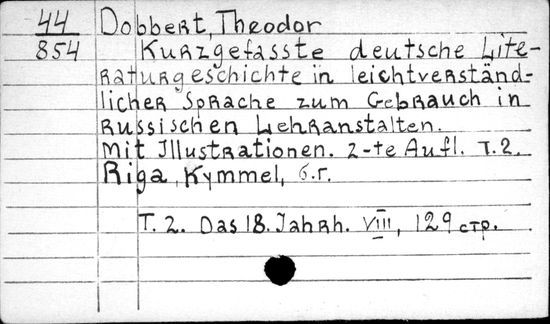 44 Dobbert, Theodor
854 Kurzgefasste deutsche Lite-
raturgeschichte in leichtverständ-
licher Sprache zum Gebrauch in
russischen Lehranstalten.
Mit Illustrationen. 2-te Aufl. T. 2.
Riga, Kymmel, б.г.
T. 2. Das 18. Jahrh. VIII, 129 стр.